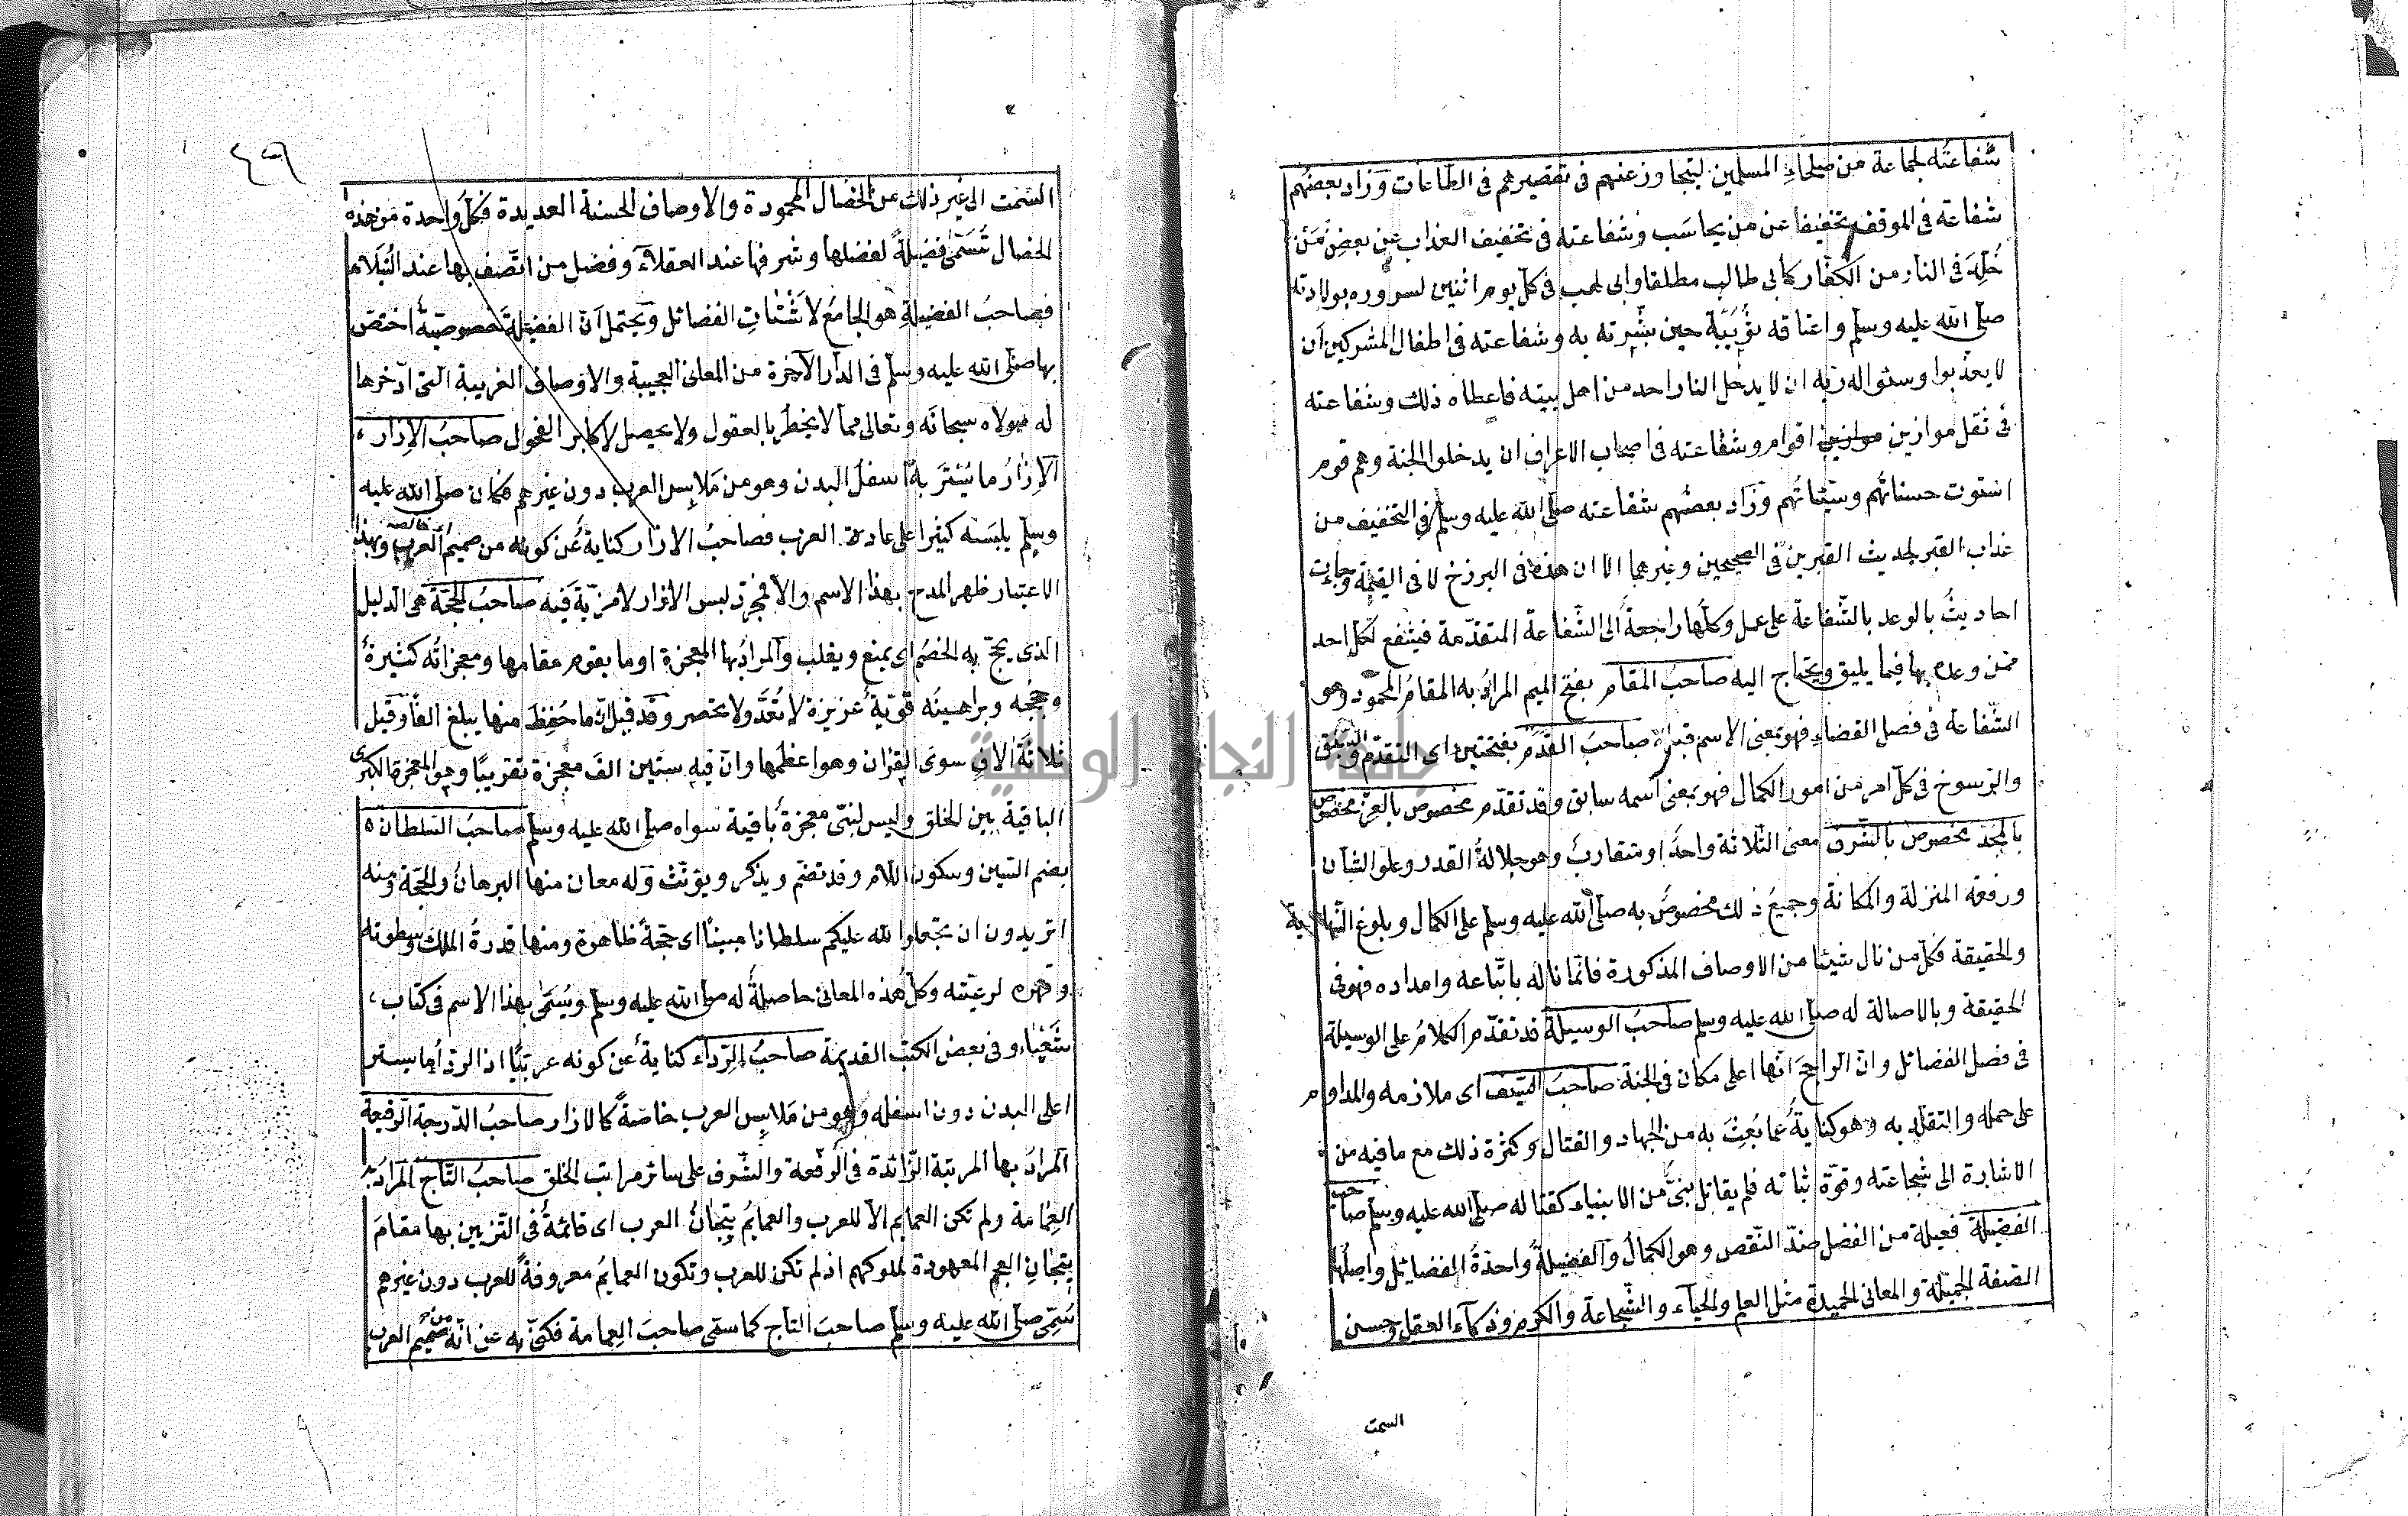 شفاعته لجماعة من صلحاء المسلمين ليتجاوز عنهم فى تقصيرهم فى الطاعات وزاد بعضهم
شفاعته فى الموقف تخفيفا عن من يحاسب وشفاعته فى تخفيف العذاب عن بعض من
خلد فى النار من الكفار كابى طالب مطلقا وابى لهب فى كل يوم اثنين لسروره بولادته
صلى الله عليه وسلم واعتاقه ثويبة حين بشرته به وشفاعته فى اطفال المشركين ان
لا يعذبوا وسئواله ربه ان لا يدخل النار احد من اهل بيته فاعطاه ذلك وشفاعته
فى ثقل موازين اقوام وشفاعته فى اصحاب الاعراف ان يدخلوا الجنة وهم قوم
استوت حسناتهم وسيئاتهم وزاد بعضهم شفاعته صلى الله عليه وسلم فى التخفيف من
عذاب القبر لحديث القبرين فى الصحيحين وغيرهما الا ان هذه فى البرزخ لا فى القيمة وجاءت
احاديث بالوعد بالشفاعة على عمل وكلها راجعة الى الشفاعة المتقدمة فيشفع لكل احد
ممن وعده بها فيما يليق ويحتاج اليه صاحب المقام بفتح الميم المراد به المقام المحمود وهو
الشفاعة فى فصل القضاء فهو بمعنى الاسم قبله صاحب القدم بفتحتين اى التقدم والسبق
والرسوخ فى كل امر من امور الكمال فهو بمعنى اسمه سابق وقد تقدم مخصوص بالعز مخصوص
بالمجد مخصوص بالشرف معنى الثلاثة واحد او متقارب وهو جلالة القدر وعلو الشأن
ورفعة المنزلة والمكانة وجميع ذلك مخصوص به صلى الله عليه وسلم على الكمال وبلوغ النهاية
والحقيقة فكل من نال شيئا من الاوصاف المذكورة فانما ناله باتباعه وامداده فهو فى
الحقيقة وبالاصالة له صلى الله عليه وسلم صاحب الوسيلة قد تقدم الكلام على الوسيلة
فى فصل الفضائل وان الراجح انها اعلى مكان فى الجنة صاحب السيف اى ملازمه والمداوم
على حمله والتقلد به وهو كناية عما بعث به من الجهاد والقتال وكثرة ذلك مع ما فيه من
الاشارة الى شجاعته وقوة ثباته فلم يقاتل نبى من الانبياء كقتاله صلى الله عليه وسلم صاحب
الفضيلة فعيلة من الفضل ضد النقص وهو الكمال والفضيلة واحدة الفضائل واصلها
الصفة الجميلة والمعانى الحميدة مثل العلم والحياء والشجاعة والكرم وذكاء العقل وحسن
السمت
٤٩
السمت الى غير ذلك من الخصال المحمودة والاوصاف الحسنة العديدة فكل واحدة من هذه
الخصال تسمى فضيلة لفضلها وشرفها عند العقلاء وفضل من اتصف بها عند النبلاء
فصاحب الفضيلة هو الجامع لاشتات الفضائل ويحتمل ان الفضيلة خصوصية اختص
بها صلى الله عليه وسلم فى الدار الآخرة من المعانى العجيبة والاوصاف الغريبة التى ادخرها
له مولاه سبحانه وتعالى مما لا يخطر بالعقول ولا يحصل لاكابر الفحول صاحب الازار
الازار ما يستر به اسفل البدن وهو من ملابس العرب دون غيرهم فكان صلى الله عليه
وسلم يلبسه كثيرا على عادة العرب فصاحب الازار كناية عن كونه من صميم العرب وبهذا
الاعتبار ظهر المدح بهذا الاسم والا فمجرد لبس الازار لا مزية فيه صاحب الحجة هى الدليل
الذى يحج به الخصم اى يمنع ويغلب والمراد بها المعجزة او ما يقوم مقامها ومعجزاته كثيرة
وحججه وبراهينه قوية غزيرة لا تعد ولا تحصر وقد قيل ان ما حفظ منها يبلغ الفا وقيل
ثلاثة الاف سوى القران وهو اعظمها وان فيه ستين الف معجزة تقريبا وهو المعجزة الكبرى
الباقية بين الخلق وليس لنبى معجزة باقية سواه صلى الله عليه وسلم صاحب السلطان
بضم السين وسكون اللام وقد تضم ويذكر ويؤنث وله معان منها البرهان والحجة ومنه
اتريدون ان تجعلوا لله عليكم سلطانا مبينا اى حجة ظاهرة ومنها قدرة الملك وسطوته
وقهره لرعيته وكل هذه المعانى حاصلة له صلى الله عليه وسلم ويسمى بهذا الاسم فى كتاب
شعياء وفى بعض الكتب القديمة صاحب الرداء كناية عن كونه عربيا اذ الرداء ما يستر
اعلى البدن دون اسفله وهو من ملابس العرب خاصة كالازار صاحب الدرجة الرفيعة
المراد بها المرتبة الزائدة فى الرفعة والشرف على سائر مراتب الخلق صاحب التاج المراد به
العمامة ولم تكن العمايم الا للعرب والعمايم تيجان العرب اى قائمة فى التزيين بها مقام
تيجان العجم المعهودة لملوكهم اذ لم تكن للعرب وتكون العمايم معروفة للعرب دون غيرهم
سمى صلى الله عليه وسلم صاحب التاج كما سمى صاحب العمامة فكنى به عن انه من صميم العرب
جامعة النجاح الوطنية